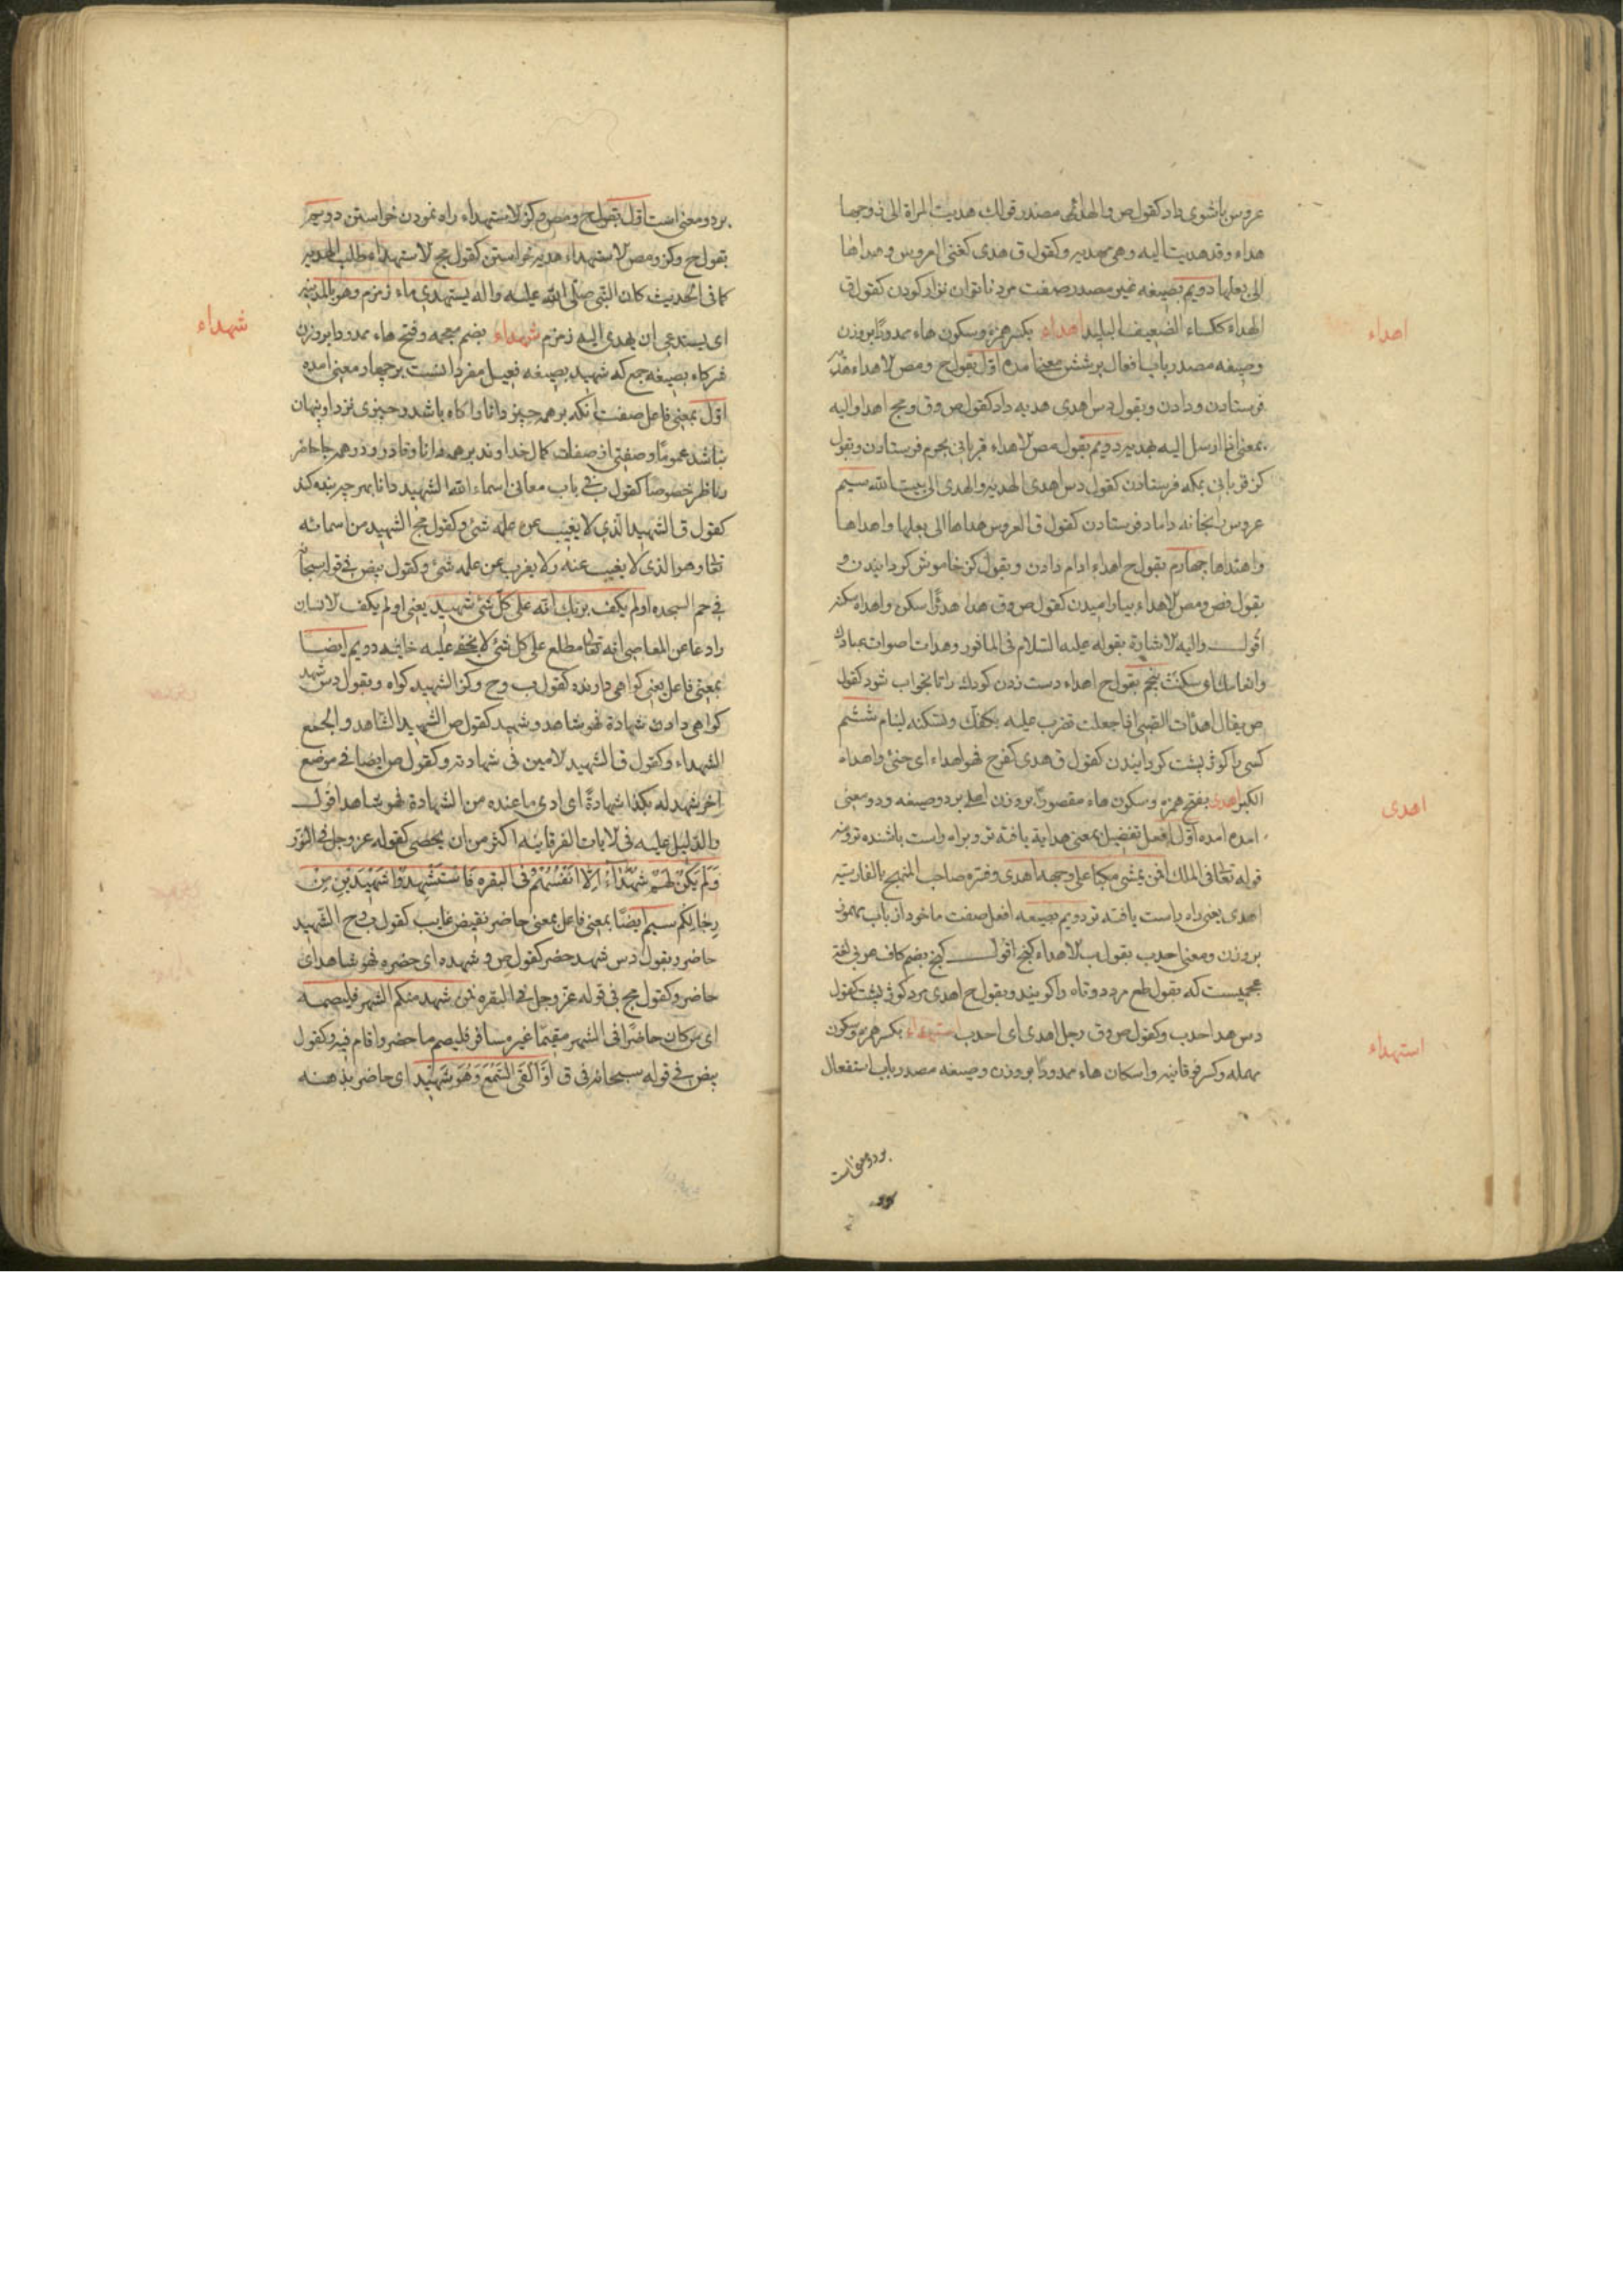 عروس باشوی داد کقول ص والهداء مصدر قولك هدیت المراة الی زوجها
هداء وقد هدیت الیه وهی مهدیه وکقول ق هدی کغنی العروس وهداها
الی بعلها دویم بصیغه غیر مصدر صفت مرد ناتوان نزار کودن کقول ق
اهداء
الهداء ککساء الضعیف البلید اهداء بکسر همزه وسکون هاء ممدودًا بروزن
وصیغه مصدر باب افعال بر شش معنی آمده اول بقول ح ومص الاهداء هدیه
فرستادن ودادن وبقول دس اهدی هدیه داد کقول ص وق ومج اهدا والیه
بمعنی اذا ارسل الیه هدیه دویم بقول مص الاهداء قربانی بحرم فرستادن وبقول
کز قربانی بمکه فرستادن کقول دس اهدی الهدیه والهدی الی بیت الله سیم
عروس بخانه داماد فرستادن کقول ق العروس هداها الی بعلها واهداها
واهتداها چهارم بقول ح اهداء ارام دادن وبقول کز خاموش کردانیدن و
بقول فض ومص الاهداء بیارامیدن کقول ص وق هدا هدئًا سکن واهداه سکنه
اقول والیه الاشارة بقوله علیه السلام فی الماثور وهدات اصوات عبادك
وانفاسك ای سکنت پنجم بقول ح اهداء دست زدن کودك را تا بخواب شود کقول
ص یقال اهدات الصبی اذا جعلت تضرب علیه بکفك وتسکنه لینام ششم
کسی را کوژ پشت کردانیدن کقول ق هدی کفرح فهو اهداء ای حنئ واهداه
اهدی
الکبر اهدی بفتح همزه وسکون هاء مقصورًا بروزن اعلم بر دو صیغه ودو معنی
امده اول افعل تفضیل بمعنی هدایة یافته تر وبراه راست باشنده تر ومنه
قوله تعالی فی الملك افمن یمشی مکبا علی وجهه اهدی وفسره صاحب المنهج بالفارسیه
اهدی یعنی راه راست یافته تر دویم بصیغه افعل صفت ماخوذ از باب مهموز
بروزن ومعنی احدب بقول ب الاهداء کنج اقول کنج بضم کاف عربی لغة
عجمیست که بقول طع مرد دوتاه را کویند وبقول ح اهدی مرد کوژ پشت کقول
استهداء
دس هدا احدب وکقول ص وق رجل اهدی ای احدب استهداء بکسر همزه وسکون
مهمله وکسر فوقانیه واسکان هاء ممدودًا بروزن وصیغه مصدر باب استفعال
بر دو معنی است
بر دو معنی است اول بقول ح ومص وکز الاستهداء راه نمودن خواستن دویم
بقول ح وکز ومص الاستهداء هدیه خواستن کقول مج الاستهداء طلب الهدیه
کما فی الحدیث کان النبی صلی الله علیه واله یستهدی ماء زمزم وهو بالمدینه
شهداء
ای یستدعی ان یهدی الیه زمزم شهداء بضم معجمه وفتح هاء ممدودا بروزن
شرکاء بصیغه جمع که شهید بصیغه فعیل مفرد انست بر چهار معنی امده
اول بمعنی فاعل صفت انکه بر همه چیز دانا واکاه باشد وچیزی نزد او پنهان
نباشد عموما وصفتی از صفات کمال خداوند بر همه دانا وقادر ودر همه جا حاضر
وناظر خصوصا کقول ب فی باب معانی اسماء الله الشهید دانا بهر چه بنده کند
کقول ق الشهید الذی لا یغیب عن علمه شئ وکقول مج الشهید من اسمائه
تعالی وهو الذی لا یغیب عنه ولا یعزب عن علمه شئ وکقول بیض فی قوله سبحانه
فی حم السجده اولم یکف بربك انه علی کل شئ شهید یعنی اولم یکف الانسان
رادعا عن المعاصی انه تعالی مطلع علی کل شئ لا یخفی علیه خافیه دویم ایضا
بمعنی فاعل یعنی کواهی دارنده کقول ب وح وکز الشهید کواه وبقول دس شهد
کواهی دادن شهادة فهو شاهد وشهید کقول ص الشهید الشاهد والجمع
الشهداء وکقول ق الشهید الامین فی شهادته وکقول ص ایضا فی موضع
اخر شهد له بکذا شهادةً ای ادی ما عنده من الشهادة فهو شاهد اقول
والدلیل علیه فی الایات الفرقانیه اکثر من ان یحصی کقوله عز وجل فی النور
وَلَمْ یَکُنْ لَهُمْ شُهَدَاءُ اِلَّا اَنْفُسُهُمْ وفی البقره فَاسْتَشْهِدُوا شَهِیدَیْنِ مِنْ
رِجَالِکُمْ سیم ایضًا بمعنی فاعل بمعنی حاضر نقیض غایب کقول ب وح الشهید
حاضر وبقول دس شهد حضر کقول ص وشهده ای حضره فهو شاهد ای
حاضر وکقول مج فی قوله عز وجل فی البقره فمن شهد منکم الشهر فلیصمه
ای من کان حاضرًا فی الشهر مقیمًا غیر مسافر فلیصم ما حضر واقام فیه وکقول
بیض فی قوله سبحانه فی ق اَوْ اَلْقَی السَّمْعَ وَهُوَ شَهِیدٌ ای حاضر بذهنه